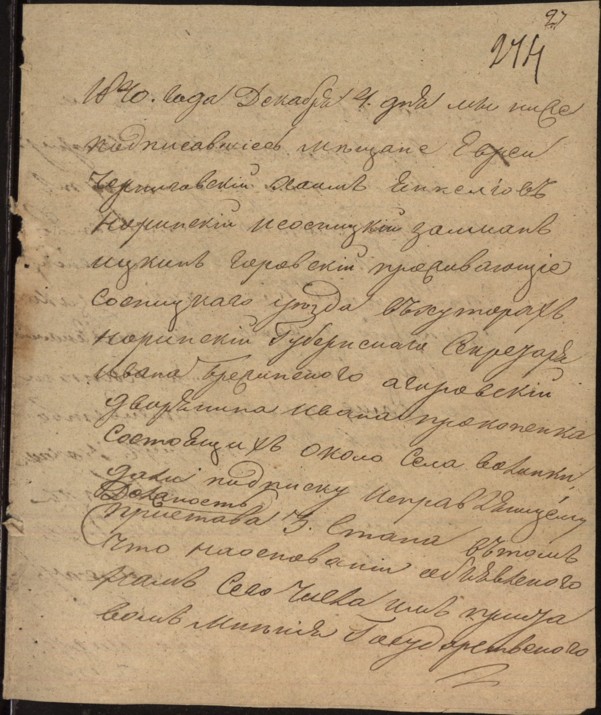 27
274
1840. года Декабря 4. дня мы ниже
подписавшиеся мещане Евреи
Черниговский Хаимъ Янкелговъ
Норинский и Сосницкий Залманъ
Ицкинъ Горовский проживающие
Сосницкого уезда въ хуторахъ
Норинский Губернского Секретаря
Ивана а Горовский
дворянина Ивана Прокопенка
состоящихъ около Села Волынки
дали подписку исправляющему
Должность
Пристава 3. Стана въ томъ
Что на основании объявленого
намъ Сего Числа имъ
Мнения Государственого